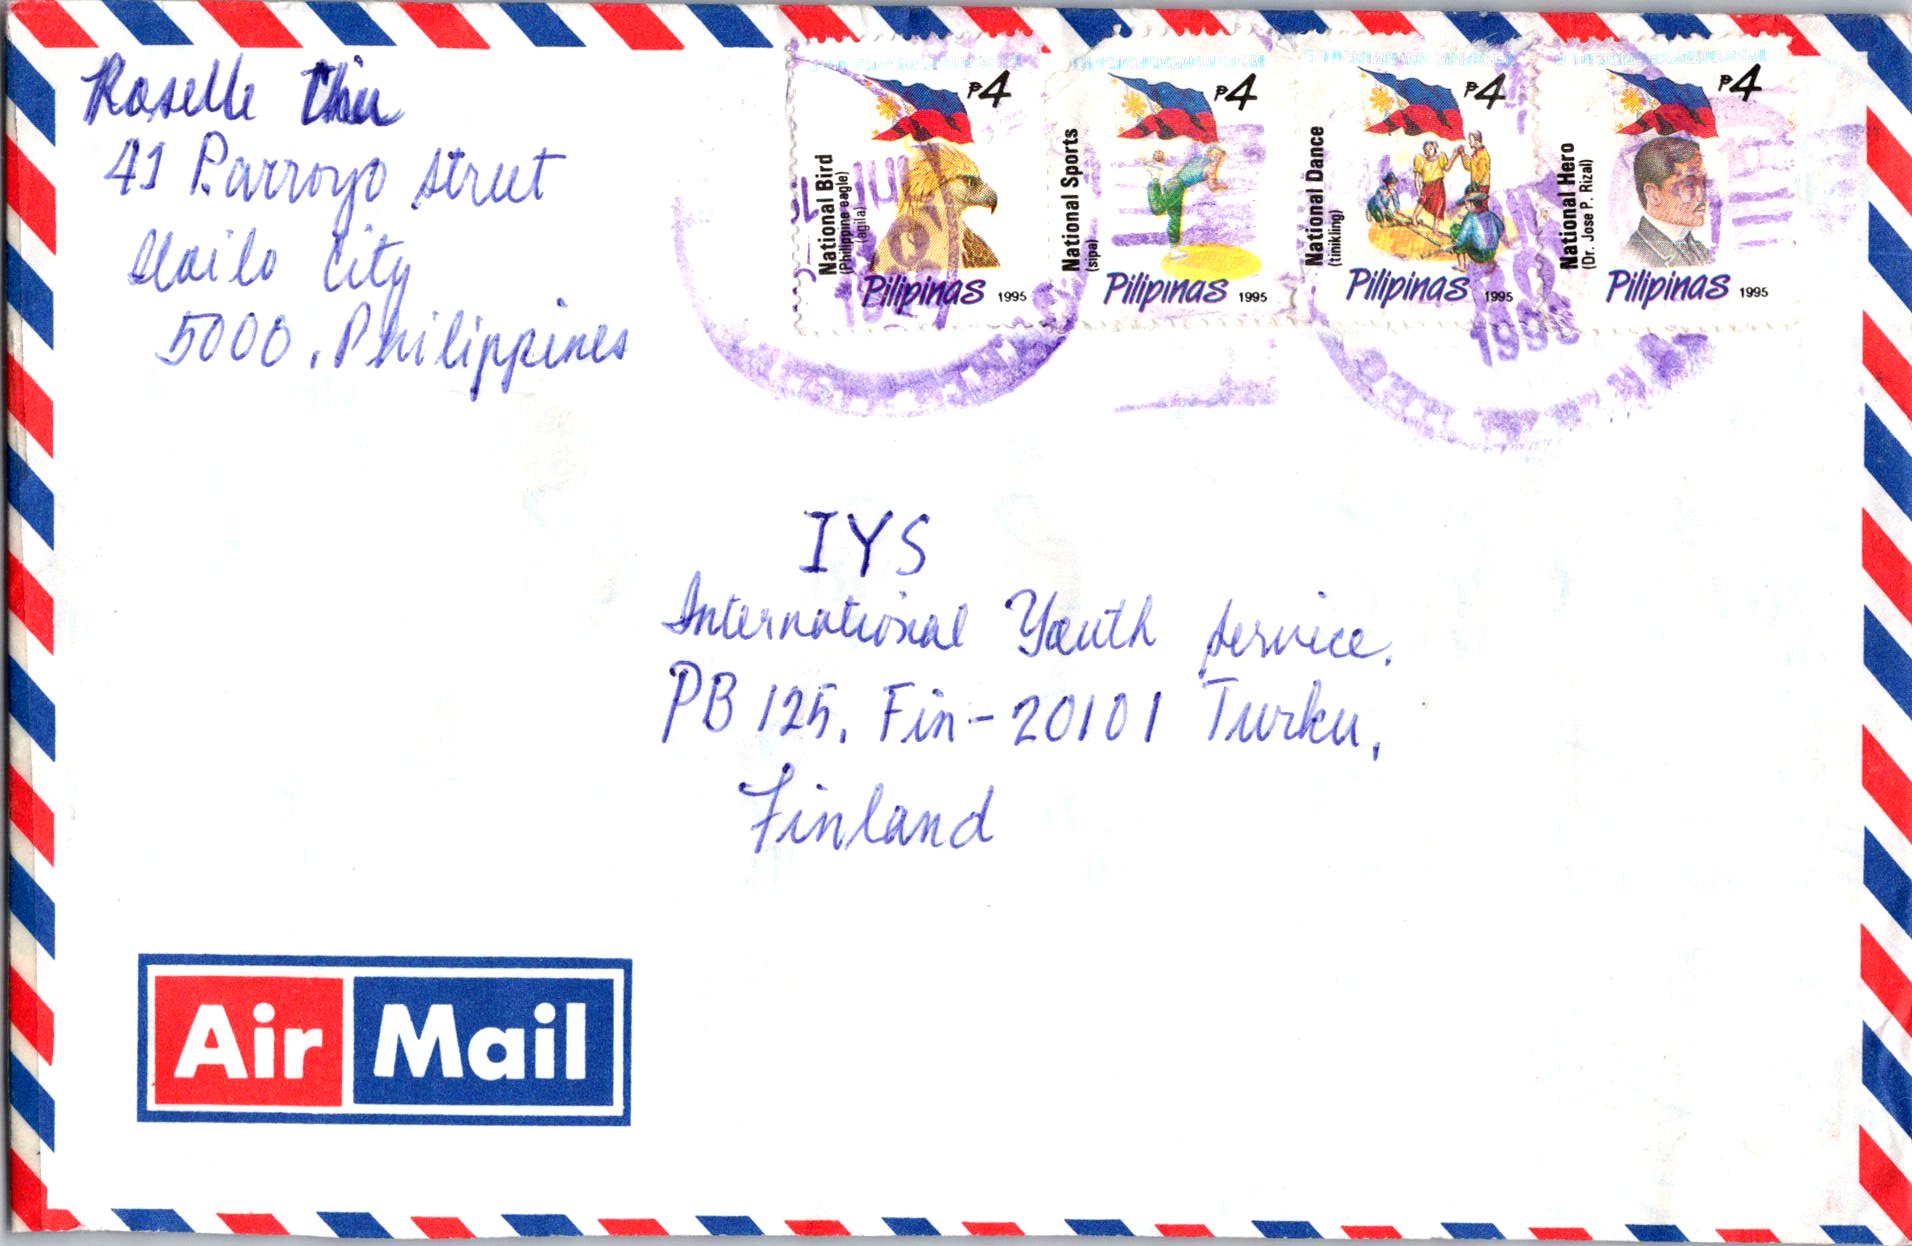 Roselle Chu
41 P. arroyo street
Iloilo City
5000, Philippines
₱4
National Bird
(Philippine eagle)
(agila)
Pilipinas 1995
₱4
National Sports
(sipa)
Pilipinas 1995
₱4
National Dance
(tinikling)
Pilipinas 1995
₱4
National Hero
(Dr. Jose P. Rizal)
Pilipinas 1995
IYS
International Youth Service.
PB 125, Fin-20101 Turku,
Finland
Air Mail